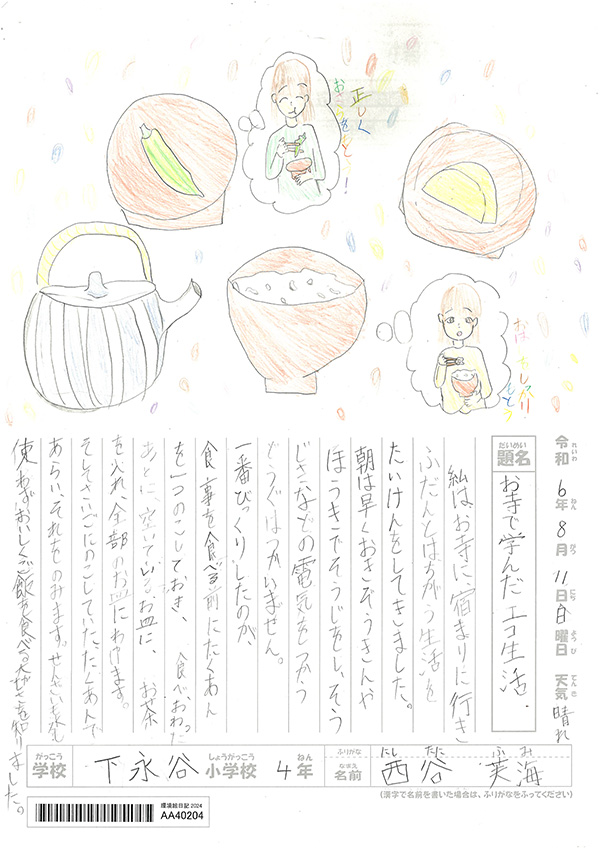 正しく
おさらをもとう!
おはしをしっかりもとう
令和6年8月11日日曜日 天気晴れ
れいわ ねん がつ にち ようび てんき
だいめい
題名
お寺で学んだエコ生活.
私はお寺に、宿まりに行き
ふだんとはちがう生活を
たいけんをしてきました。
朝は早くおきぞうきんや
ほうきでそうじをし、そう
じきなどの電気をつかう
どうぐはつかいません。
一番びっくりしたのが、
食事を食べる前にたくあん
を1つのこしておき、食べおわった
あとに、空いているお皿に、お茶
を入れ、全部のお皿にわけます。
そしてさいごにのこしていた、たくあんで
あらい、それをのみます。せんざいも水も
使わず、おいしくご飯を食べる大切さを知りました。
がっこう
学校
下永谷
しょうがっこう
小学校
4年
ねん
ふりがな
なまえ
名前
にし たに ふ み
西谷 芙海
(漢字で名前を書いた場合は、ふりがなをふってください)
環境絵日記 2024
AA40204